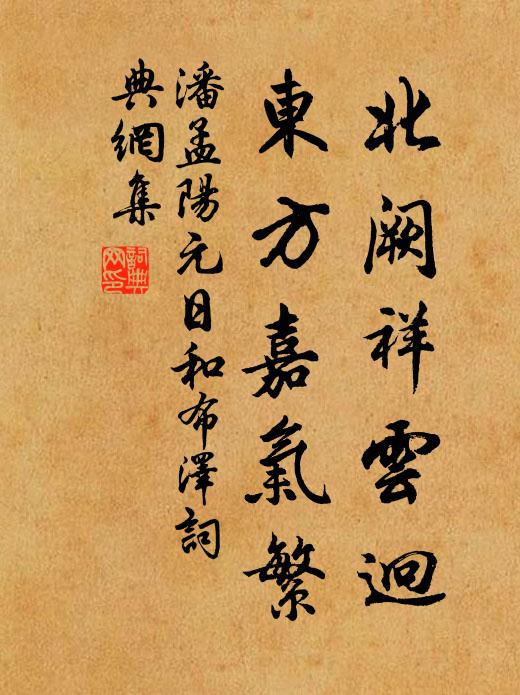 北闕祥雲迥
東方嘉氣繁
潘孟陽元日和布澤詞
典網集
詞典
网印